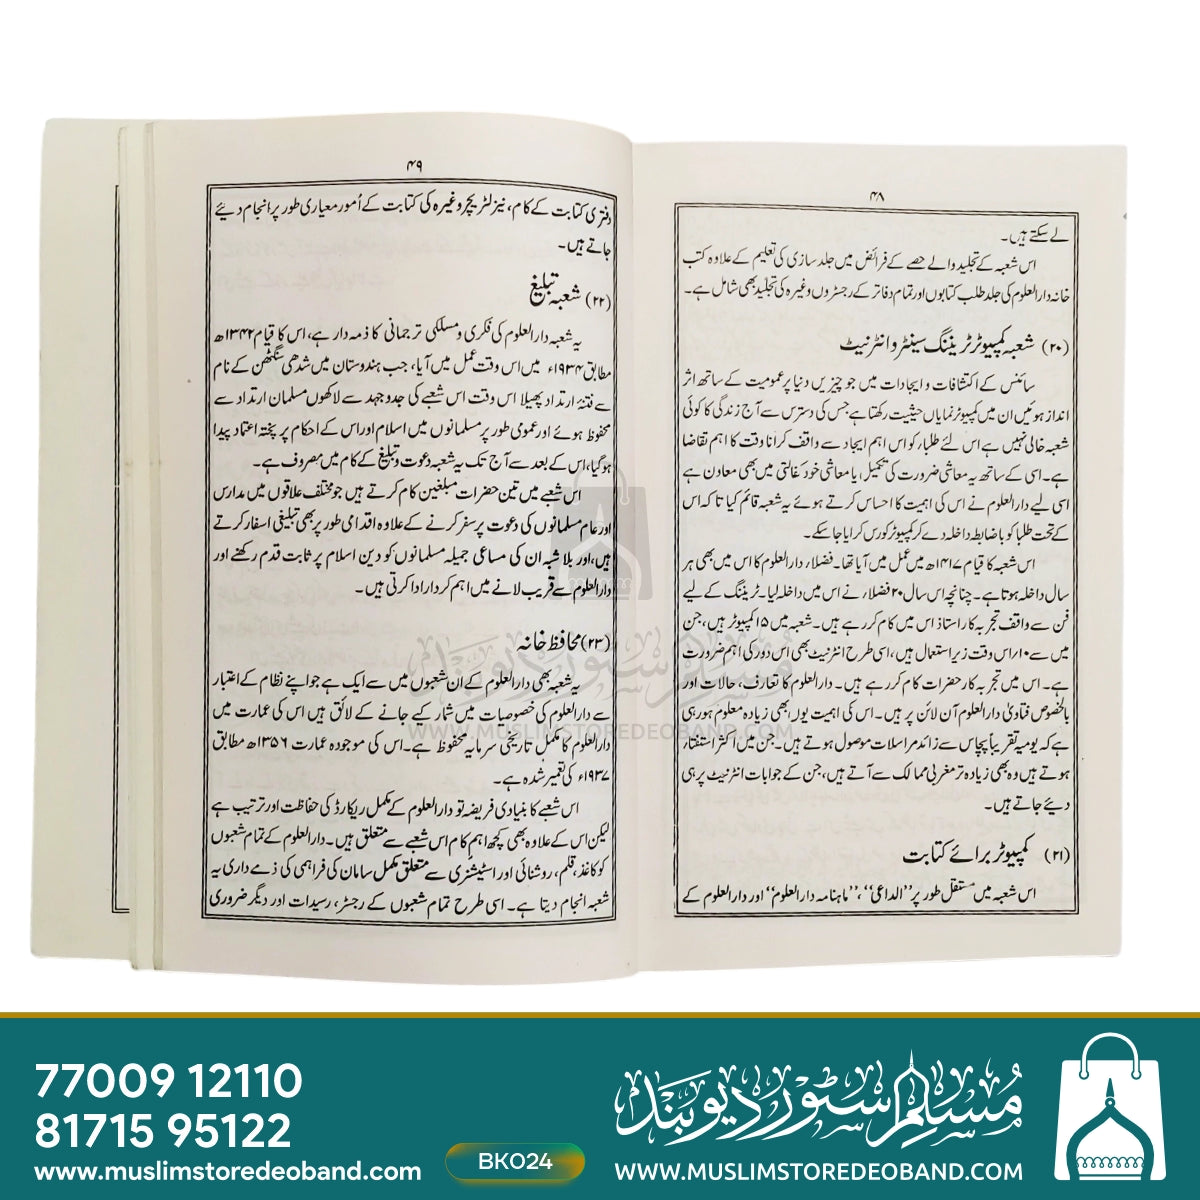 ۴۸
لے سکتے ہیں۔
اس شعبہ کے تجلید والے حصے کے فرائض میں جلد سازی کی تعلیم کے علاوہ کتب
خانہ دارالعلوم کی جلد طلب کتابوں اور تمام دفاتر کے رجسٹروں وغیرہ کی تجلید بھی شامل ہے۔
(۲۰) شعبہ کمپیوٹر ٹریننگ سینٹر و انٹرنیٹ
سائنس کے اکتشافات و ایجادات میں جو چیزیں دنیا پر عمومیت کے ساتھ اثر
انداز ہوئیں ان میں کمپیوٹر نمایاں حیثیت رکھتا ہے جس کی دسترس سے آج زندگی کا کوئی
شعبہ خالی نہیں ہے اس لئے طلبار کو اس اہم ایجاد سے واقف کرانا وقت کا اہم تقاضا
ہے۔ اسی کے ساتھ یہ معاشی ضرورت کی تکمیل یا معاشی خود کفالتی میں بھی معاون ہے
اسی لیے دارالعلوم نے اس کی اہمیت کا احساس کرتے ہوئے یہ شعبہ قائم کیا تاکہ اس
کے تحت طلبا کو باضابطہ داخلہ دے کر کمپیوٹر کورس کرایا جاسکے۔
اس شعبہ کا قیام ۱۴۱۷ھ میں عمل میں آیا تھا۔ فضلار دارالعلوم کا اس میں بھی ہر
سال داخلہ ہوتا ہے۔ چنانچہ اس سال ۲۰ فضلار نے اس میں داخلہ لیا۔ ٹریننگ کے لیے
فن سے واقف تجربہ کار استاذ اس میں کام کر رہے ہیں۔ شعبہ میں ۱۵ کمپیوٹر ہیں، جن
میں سے ۱۰ اس وقت زیر استعمال ہیں، اسی طرح انٹرنیٹ بھی اس دور کی اہم ضرورت
ہے۔ اس میں تجربہ کار حضرات کام کر رہے ہیں۔ دارالعلوم کا تعارف، حالات اور
بالخصوص فتاویٰ دارالعلوم آن لائن پر ہیں۔ اس کی اہمیت یوں بھی زیادہ معلوم ہورہی
ہے کہ یومیہ تقریباً پچاس سے زائد مراسلات موصول ہوتے ہیں۔ جن میں اکثر استفتار
ہوتے ہیں وہ بھی زیادہ تر مغربی ممالک سے آتے ہیں، جن کے جوابات انٹرنیٹ پر ہی
دیئے جاتے ہیں۔
(۲۱) کمپیوٹر برائے کتابت
اس شعبہ میں مستقل طور پر "الداعی"، "ماہنامہ دارالعلوم" اور دارالعلوم کے
۴۹
دفتری کتابت کے کام، نیز لٹریچر وغیرہ کی کتابت کے اُمور معیاری طور پر انجام دیئے
جاتے ہیں۔
(۲۲) شعبہ تبلیغ
یہ شعبہ دارالعلوم کی فکری و مسلکی ترجمانی کا ذمہ دار ہے، اس کا قیام ۱۳۴۲ھ
مطابق ۱۹۳۴ء میں اس وقت عمل میں آیا، جب ہندوستان میں شدھی سنگٹھن کے نام
سے فتنۂ ارتداد پھیلا اس وقت اس شعبے کی جدوجہد سے لاکھوں مسلمان ارتداد سے
محفوظ ہوئے اور عمومی طور پر مسلمانوں میں اسلام اور اس کے احکام پر پختہ اعتماد پیدا
ہوگیا، اس کے بعد سے آج تک یہ شعبہ دعوت و تبلیغ کے کام میں مصروف ہے۔
اس شعبے میں تین حضرات مبلغین کام کرتے ہیں جو مختلف علاقوں میں مدارس
اور عام مسلمانوں کی دعوت پر سفر کرنے کے علاوہ اقدامی طور پر بھی تبلیغی اسفار کرتے
ہیں، اور بلاشبہ ان کی مساعی جمیلہ مسلمانوں کو دین اسلام پر ثابت قدم رکھنے اور
دارالعلوم سے قریب لانے میں اہم کردار ادا کرتی ہیں۔
(۲۳) محافظ خانہ
یہ شعبہ بھی دارالعلوم کے ان شعبوں میں سے ایک ہے جو اپنے نظام کے اعتبار
سے دارالعلوم کی خصوصیات میں شمار کیے جانے کے لائق ہیں اس کی عمارت میں
دارالعلوم کا مکمل تاریخی سرمایہ محفوظ ہے۔ اس کی موجودہ عمارت ۱۳۵۶ھ مطابق
۱۹۳۷ء کی تعمیر شدہ ہے۔
اس شعبے کا بنیادی فریضہ تو دارالعلوم کے مکمل ریکارڈ کی حفاظت اور ترتیب ہے
لیکن اس کے علاوہ بھی کچھ اہم کام اس شعبے سے متعلق ہیں۔ دارالعلوم کے تمام شعبوں
کو کاغذ، قلم، روشنائی اور اسٹیشنری سے متعلق مکمل سامان کی فراہمی کی ذمے داری یہ
شعبہ انجام دیتا ہے۔ اسی طرح تمام شعبوں کے رجسٹر، رسیدات اور دیگر ضروری
مسلم سٹور دیوبند
WWW.MUSLIMSTOREDEOBAND.COM
77009 12110
81715 95122
www.muslimstoredeoband.com
BK024
مسلم سٹور دیوبند
WWW.MUSLIMSTOREDEOBAND.COM